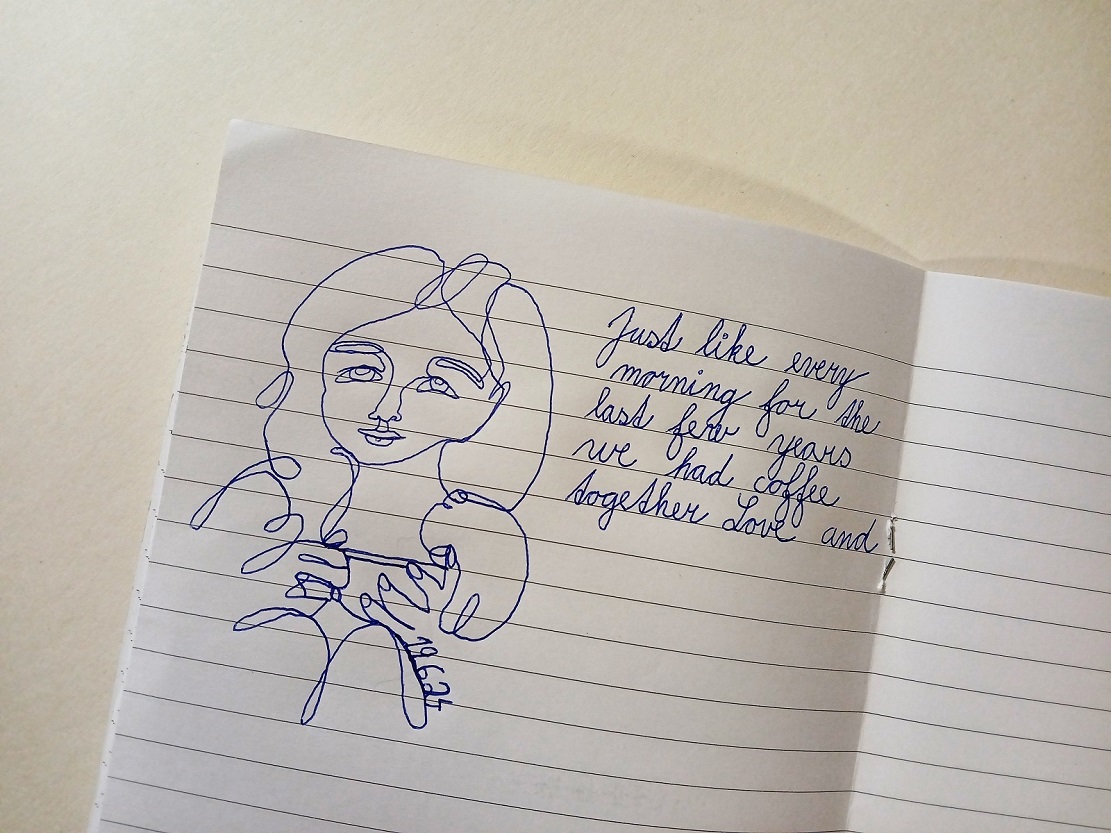 Just like every
morning for the
last few years
we had coffee
together Love and
19.6.24